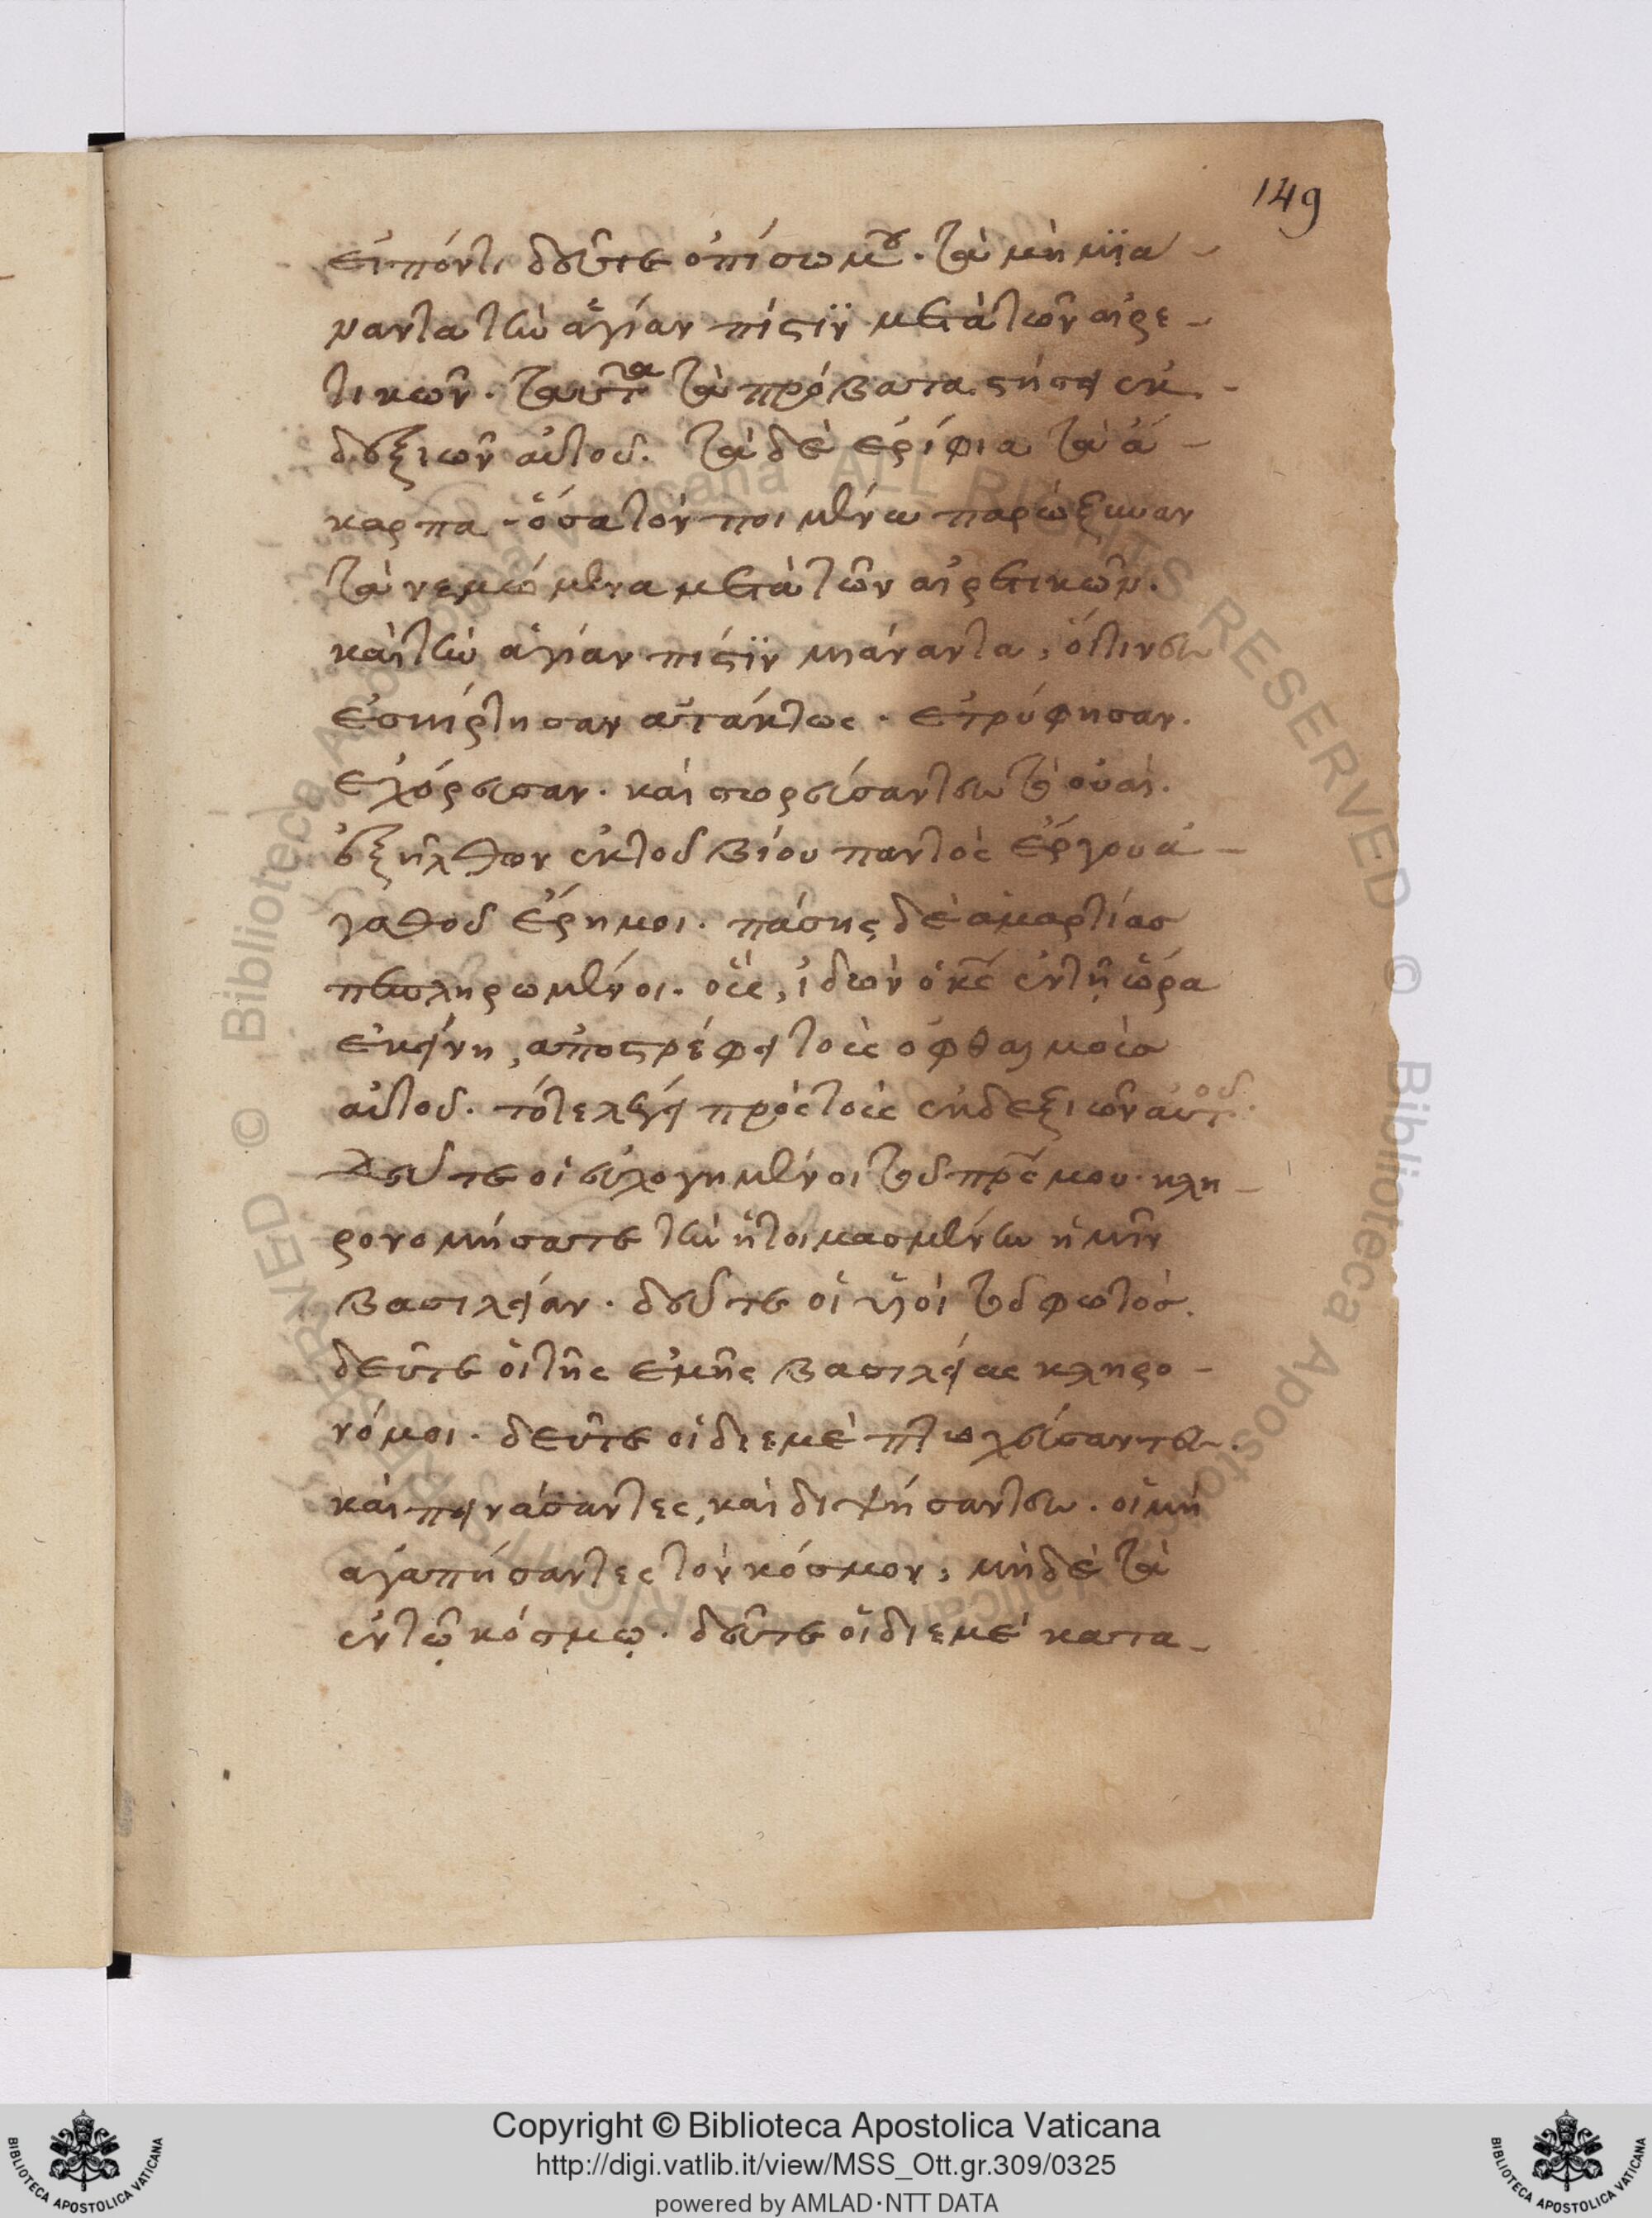 149
εἰπόντι δεῦτε ὀπίσω μου. τὰ μὴ μϊα -
ναντα τὴν ἁγίαν πίστϊν μετὰ τῶν αἱρε -
τικῶν. ταῦτα τὰ πρόβατα στήσει ἐκ -
δεξιῶν αὐτοῦ. τὰ δὲ ἐρίφια τὰ ἄ -
καρπα. ὅσα τὸν ποιμένα παρώξυναν
τὰ νεμώμενα μετὰ τῶν αἱρετικῶν.
καὶ τὴν ἁγίαν πίστϊν μιάναντα, οἵτινες
ἐσκίρτησαν ἀτάκτως. ἐτρύφησαν.
ἐχόρευσαν. καὶ πορεύσαντες τὸ οὐαί.
ἐξῆλθον ἐκ τοῦ βίου παντὸς ἔργου ἀ -
γαθοῦ ἔρημοι. πάσης δὲ ἁμαρτίας
πεπληρωμένοι. οὓς, ἰδὼν ὁ κς ἐν τῇ ὥρα
ἐκείνη, ἀποστρέφει τοὺς ὀφθαλμοὺς
αὐτοῦ. τότε λέγει πρὸς τοὺς ἐκ δεξιῶν αὐτοῦ.
Δεῦτε οἱ εὐλογημένοι τοῦ πρς μου. κλη -
ρονομήσατε τὴν ἡτοιμασμένην ἡμῖν
βασιλείαν. δεῦτε οἱ υἱοὶ τοῦ φωτός.
δεῦτε οἱ τῆς ἐμῆς βασιλείας κληρο -
νόμοι. δεῦτε οἱ δι ἐμὲ πτωχεύσαντες.
καὶ πεινάσαντες, καὶ διψήσαντες. οἱ μὴ
ἀγαπήσαντες τὸν κόσμον, μηδὲ τὰ
ἐν τῷ κόσμῳ. δεῦτε οἱ δι ἐμὲ κατα -
Copyright © Biblioteca Apostolica Vaticana
http://digi.vatlib.it/view/MSS_Ott.gr.309/0325
powered by AMLAD·NTT DATA
BIBLIOTECA APOSTOLICA VATICANA
BIBLIOTECA APOSTOLICA VATICANA